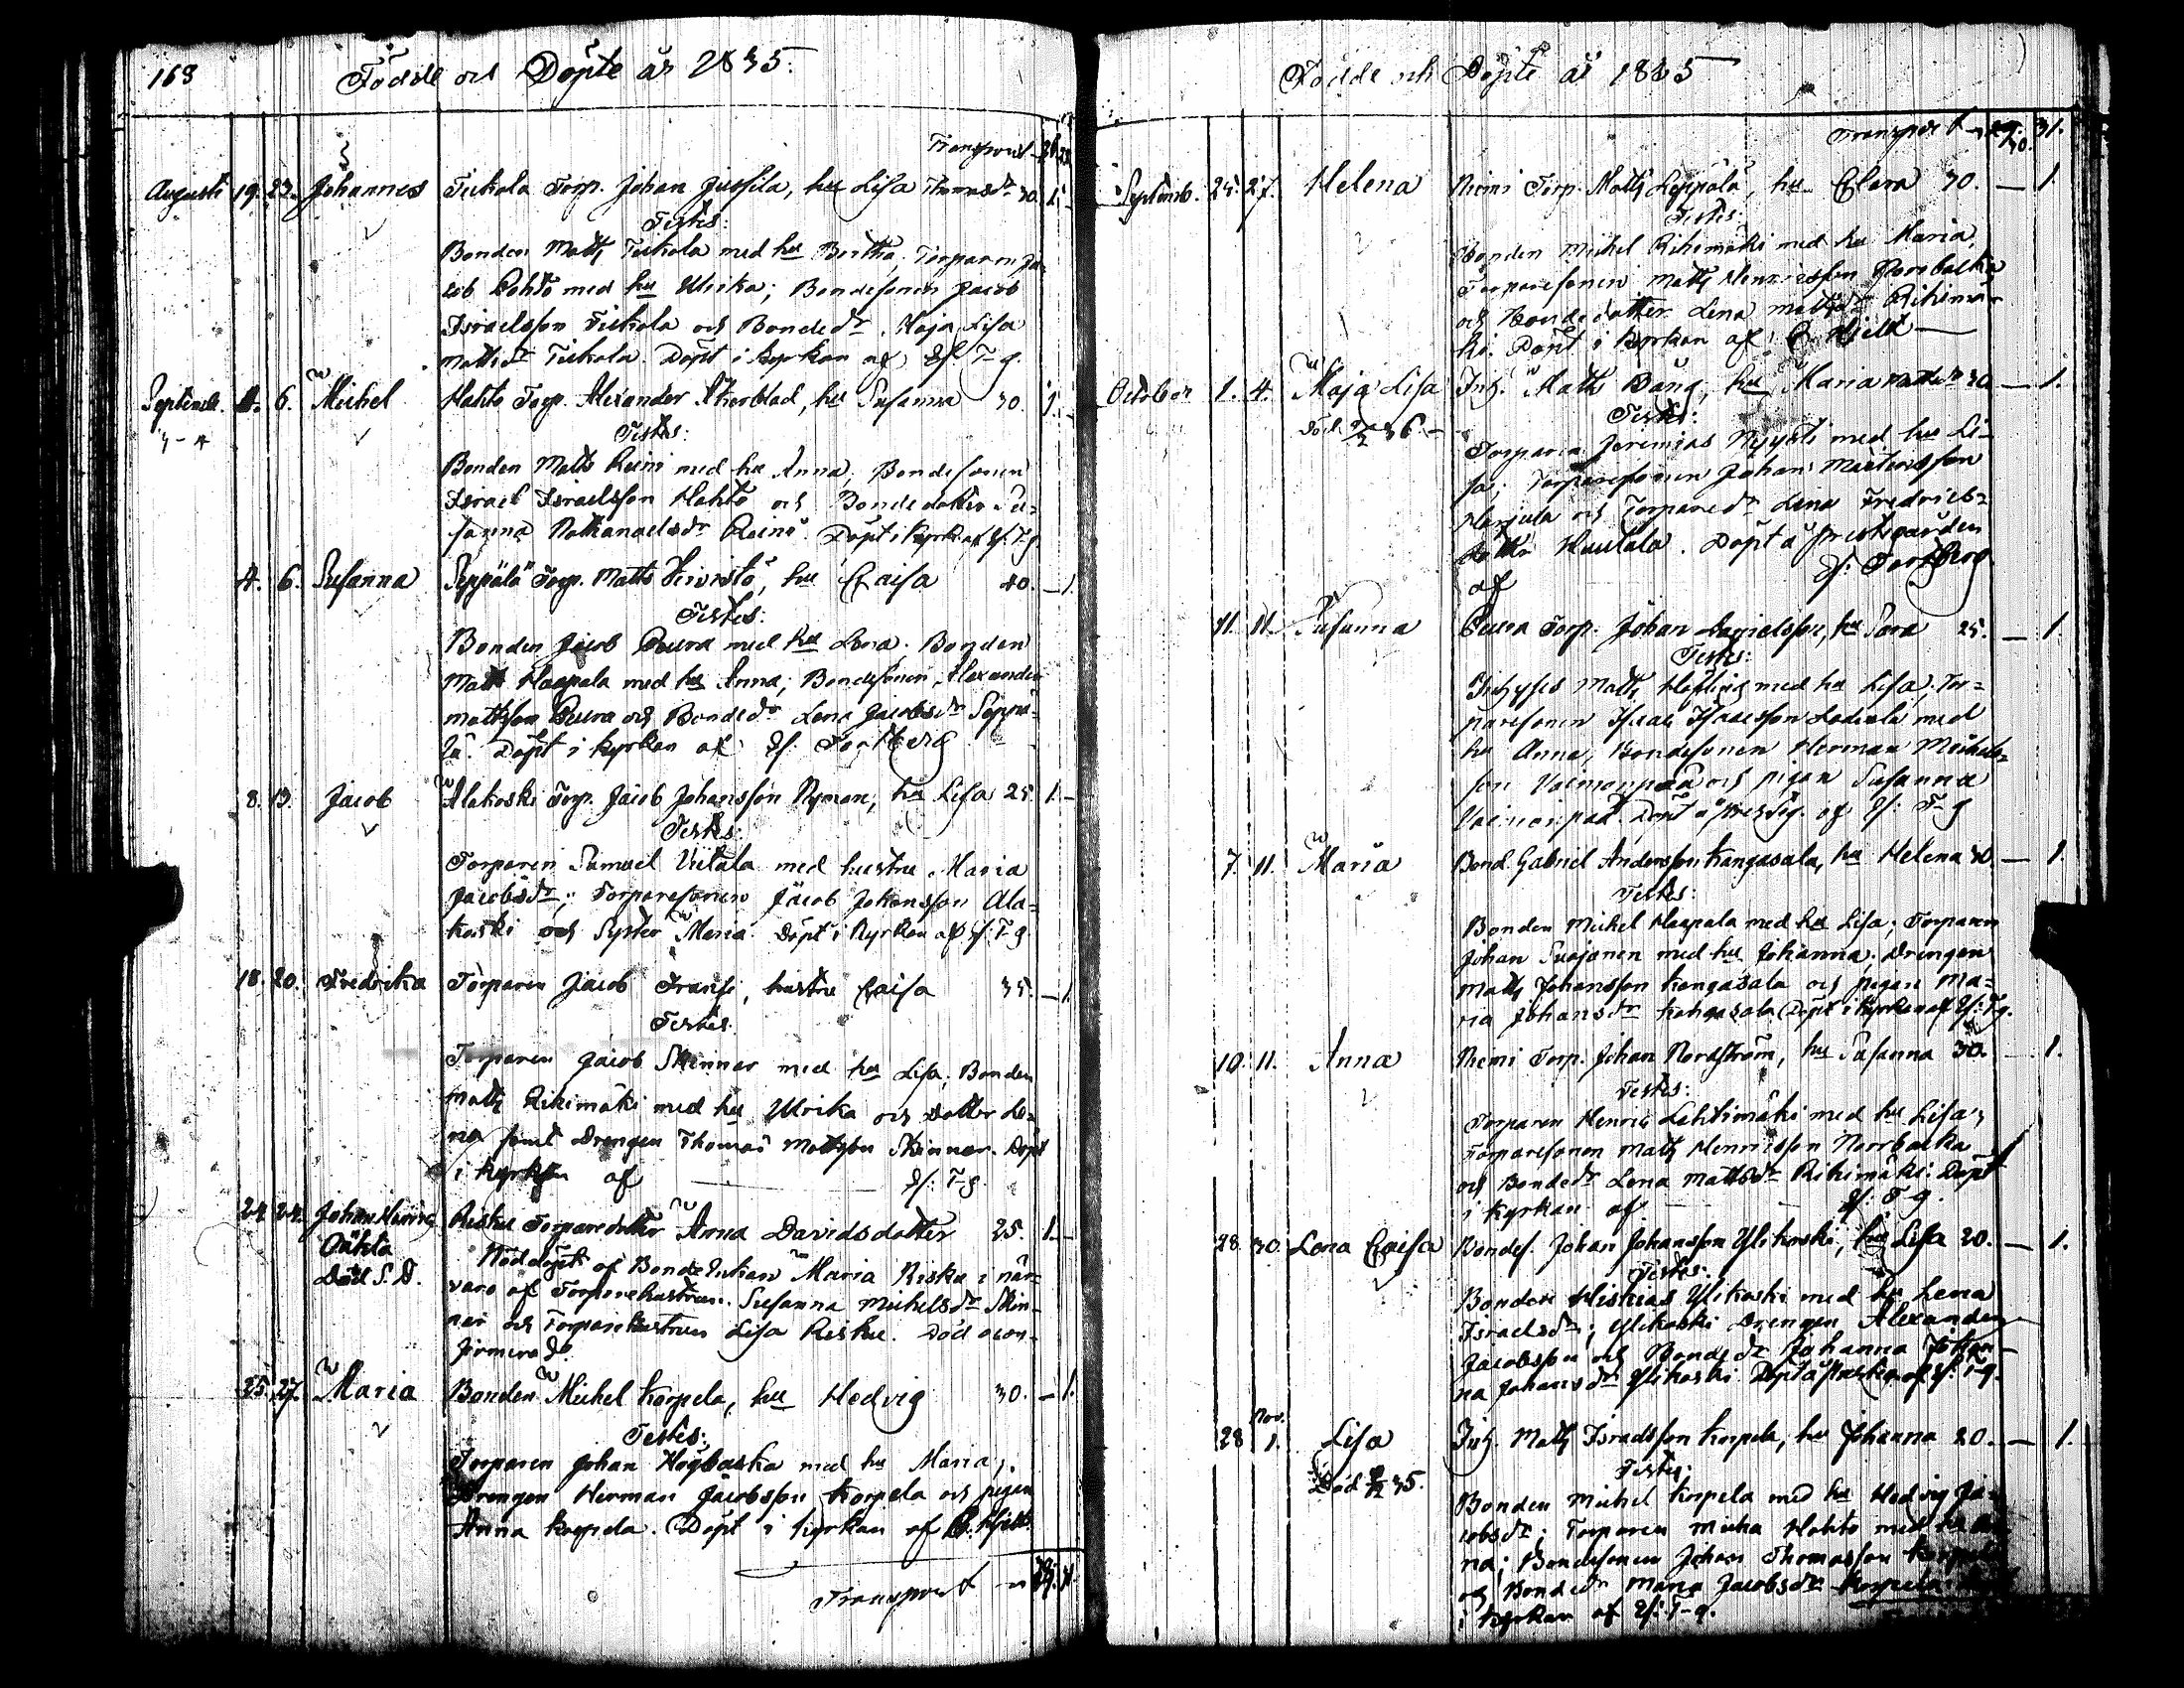 168 Födde och Döpte år 1835.
Transport
Augusti 19. 23. Johannes Tiskola Torp. Johan Jussila, hu Lisa Thomasdr 30. 1. –
Testes:
Bonden Matts Tiskola med hu Beritha, Torparen Ja-
cob Pohto med hu Ulrika; Bondesonen Jacob
Israelsson Tiskola och Bondedr. Maja Lisa
Mattsdr Tiskola. Döpt i kyrkan af Ef. T–g.
Septemb. 4. 6. Michel Hahto Torp. Alexander Åkerblad, hu Susanna 30. 1. –
Testes:
Bonden Matts Reini med hu Anna; Bondesonen
Israel Israelsson Hahto och Bondedotter Su-
sanna Nathanaelsdr Reini. Döpt i kyrk. af Ef. T–g.
4. 6. Susanna Seppälä Torp. Matts Kivistö, hu Caisa 40. – 1.
Testes:
Bonden Jacob Peura med hu Lena, Bonden
Matts Haapala med hu Anna; Bondesonen Alexander
Mattsson Peura och Bondedr Lena Jacobsdr Seppä-
lä. Döpt i kyrkan af Ef. Forsberg
8. 13. Jacob Alakoski Torp. Jacob Johansson Nyman, hu Lisa 25. 1. –
Testes:
Torparen Samuel Viitala med hustru Maria
Jacobsdr; Torparesonen Jacob Johansson Ala-
koski och Syster Maria. Döpt i Kyrkan af Ef. T–g
18. 20. Fredrika Torparen Jacob Fransi, hustru Caisa 35. – 1.
Testes:
Torparen Jacob Skinnar med hu Lisa; Bonden
Matts Rihimäki med hu Ulrika och Dotter Le-
na samt Drengen Thomas Mattsson Skinnar. Döpt
i kyrkan af Ef. T–g.
24. 24. Johan Henric Risku Torparedotter Anna Davidsdotter 25. 1. –
Oäkta
Död S. D.
Nöddöpt af Bondeenkan Maria Risku i när-
varo af Torparehustrun Susanna Michelsdr Skin-
nar och Torparehustrun Lisa Risku. Död ocon-
firmerad.
25. 27. Maria Bonden Michel Korpela, hu Hedvig 30. – 1.
Testes:
Torparen Johan Högbacka med hu Maria;
Drengen Herman Jacobsson Korpela och pigan
Anna Korpela. Döpt i kyrkan af C. Hjelt
Transport
Födde och Döpte år 1835
Transport 31.
Septemb. 25. 27. Helena Niemi Torp. Matts Leppälä, hu Clara 30. – 1.
Testes:
Bonden Michel Rihimäki med hu Maria,
Torparesonen Matts Henricsson Norrbacka
och Bondedotter Lena Mattsdr Rihimä-
ki. Döpt i kyrkan af C. Hjelt
October 1. 4. Maja Lisa Inh. Matts Bång, hu Maria Mattsdr 30 – 1.
Testes:
Torparen Jeremias Nyysti med hu Li-
sa; Torparesonen Johan Mårtensson
Harjula och Torparedr Lena Fredrics-
dotter Huutala. Döpt å prestgården
af Ef. Forsberg
11. 11. Susanna Peura Torp. Johan Danielsson, hu Sara 25. – 1.
Testes:
Inhyses Matts Hofling med hu Lisa; Tor-
paresonen Isaac Isacsson Ladvala med
hu Anna; Bondesonen Herman Michels-
son Vainionpää och pigan Susanna
Vainionpää. Döpt å prestg. af Ef. T–g
7. 11. Maria Bond. Gabriel Andersson Kangasala, hu Helena 30. – 1.
Testes:
Bonden Michel Haapala med hu Lisa; Torparen
Johan Suojanen med hu Johanna; Drengen
Matts Johansson Kangasala och pigan Ma-
ria Johansdr Kangasala. Döpt i kyrkan af Ef. T–g.
10. 11. Anna Niemi Torp. Johan Nordström, hu Susanna 30. – 1.
Testes:
Torparen Henric Lehtimäki med hu Lisa;
Torparesonen Matts Henricsson Norrbacka
och Bondedr Lena Mattsdr Rihimäki. Döpt
i kyrkan af Ef. T–g.
28. 30. Lena Caisa Bondes. Johan Johansson Ylikoski, hu Lisa 20. – 1.
Testes:
Bonden Hiskias Ylikoski med hu Lena
Israelsdr; Ylikoski Drengen Alexander
Jacobsson och Bondedr Johanna Johan-
na Johansdr Ylikoski. Döpt å Prestg. af Ef. T–g.
28 Nov. 1. Lisa Inh. Matts Israelsson Korpela, hu Johanna 20. – 1.
Testes:
Bonden Michel Korpela med hu Hedvig Ja-
cobsdr; Torparen Micka Hahto med hu
na; Bondesonen Johan Thomasson Korpela
och Bondedr Maria Jacobsdr Korpela.
i kyrkan af Ef. T–g.